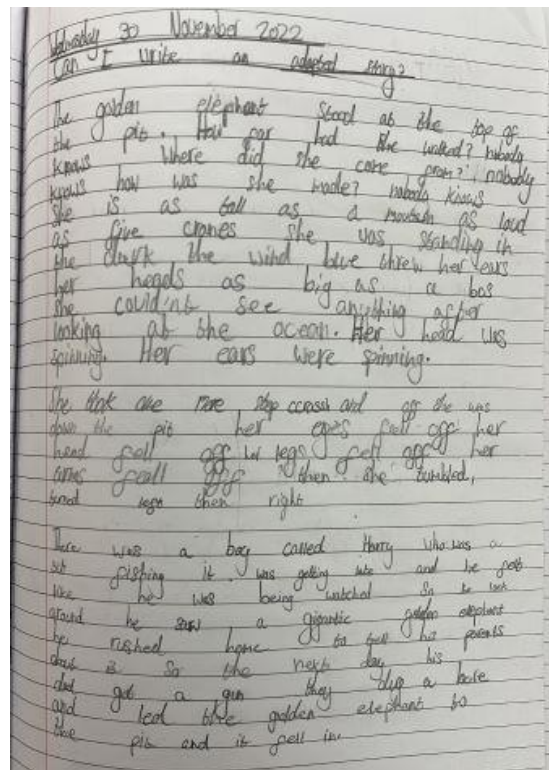 Wednesday 30 November 2022
Can I write an adapted story?
The golden elephant stood at the top of
the pit. How far had she walked? nobody
knows Where did she come from? nobody
knows how was she made? nobody knows
She is as tall as a mountain as loud
as five cranes she was standing in
the dark the wind blue threw her ears
her heads as big as a bos
she could'nt see anything after
looking at the ocean. Her head was
spinning. Her ears were spinning.
She took one more step accross and off she was
down the pit her eyes fell off her
head fell off her legs fell off her
fell off then she tumbled,
turned left then right
There was a boy called Harry who was a
fishing it was getting late and he felt
like he was being watched So he look
around he saw a gigantic golden elephant
he rushed home to tell his parents
about is So the next day his
dad got a gun they dug a hole
and lead the golden elephant to
the pit and it fell in.